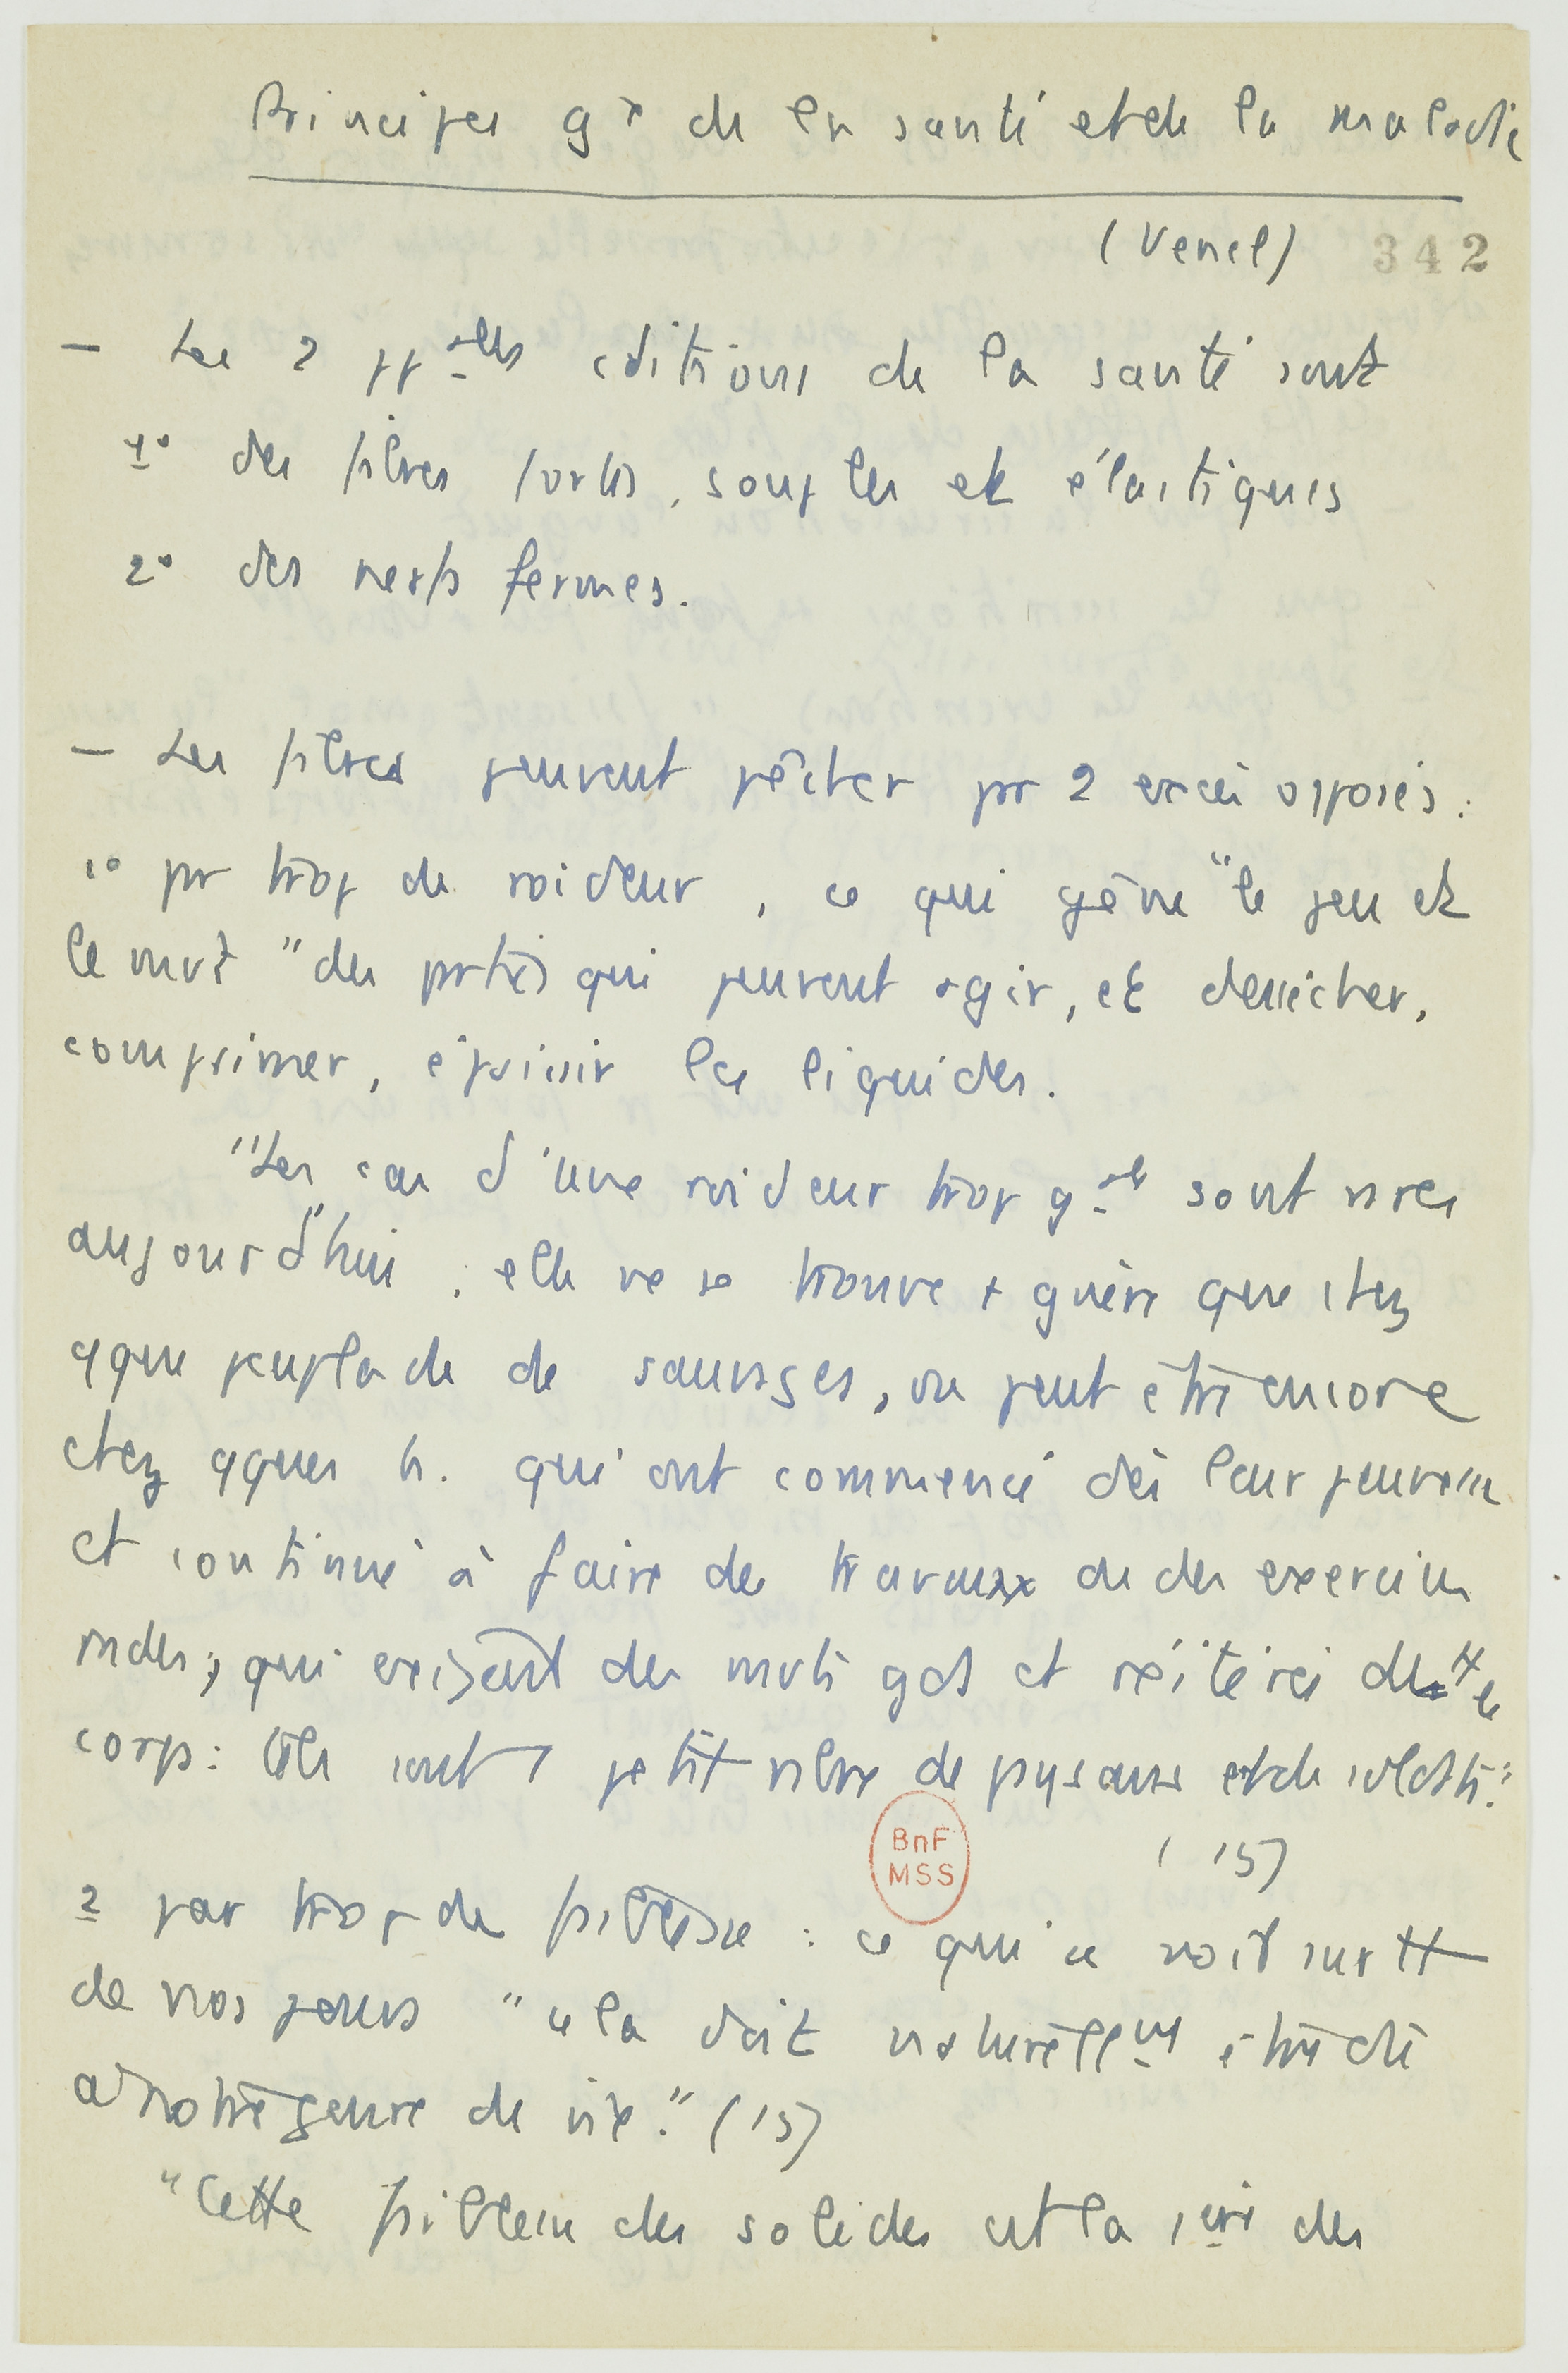 Principes gx de la santé et de la maladie
(Venel) 342
— Les 2 ppales cditions de la santé sont
1° des fibres fortes, souples et élastiques
2° des nerfs fermes.
— Les fibres peuvent pêcher pr 2 excès opposés :
1° pr trop de roideur, ce qui gêne "le jeu et
le mvt" des prties qui peuvent agir, et dessécher,
comprimer, épaissir les liquides.
"Les cas d'une roideur trop gale sont rares
aujourd'hui ; elle ne se trouve + guère que chez
qque peuplade de sauvages, ou peut être encore
chez qques h. qui ont commencé dès leur jeunesse
et continué à faire des travaux de des exercices
rudes, qui exigeant des mvts gds et réitérés de tt le
corps : tels sont 1 petit nbre de paysans et de soldats."
(15)
2 par trop de faiblesse : ce qui se voit surtt
de nos jours "cela doit naturellemt être dû
à notre genre de vie." (15)
"Cette faiblesse des solides est la 1ère des
BnF
MSS